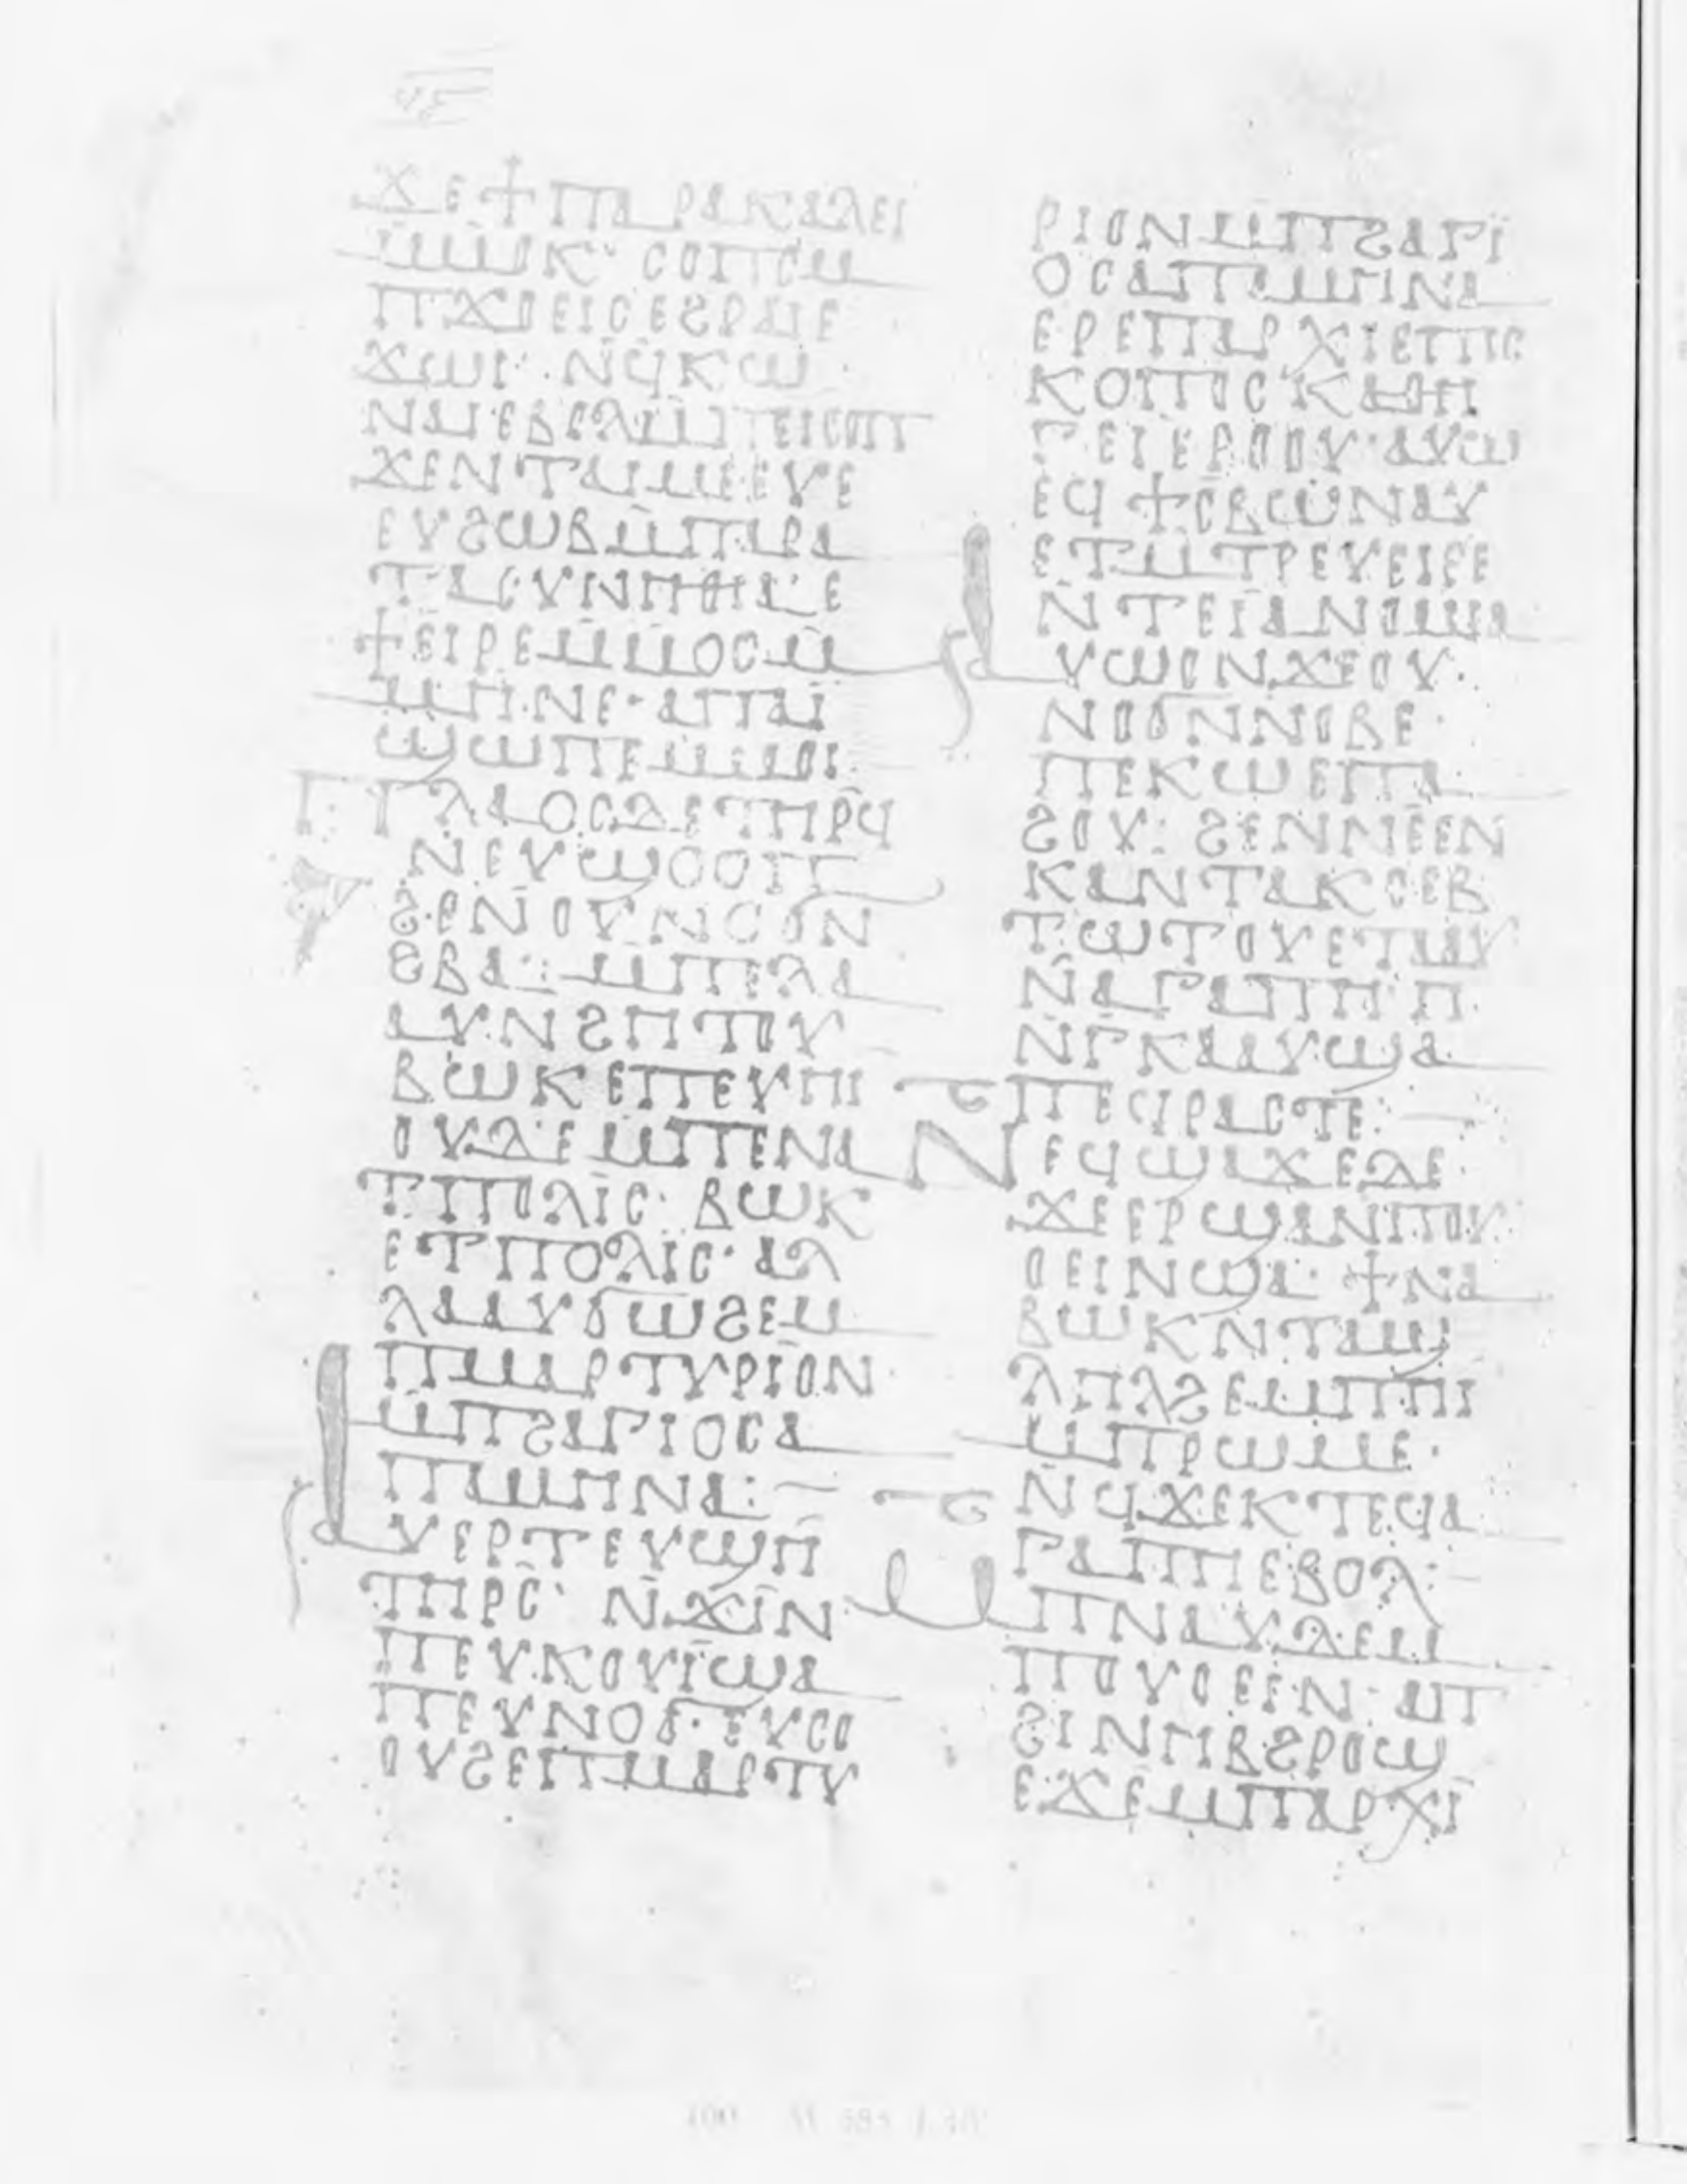 ϫⲉϯⲡⲁⲣⲁⲕⲁⲗⲉⲓ
ⲙ̄ⲙⲟⲕ· ⲥⲟⲡⲥⲙ̄
ⲡϫⲟⲉⲓⲥⲉϩⲣⲁⲓⲉ
ϫⲱⲓ· ⲛ̄ϥⲕⲱ
ⲛⲁⲓⲉⲃⲟⲗⲙ̄ⲡⲉⲓⲥⲟⲡ
ϫⲉⲛⲧⲁⲓⲙⲉⲉⲩⲉ
ⲉⲩϩⲱⲃⲙ̄ⲡⲁⲣⲁ
ⲧⲁⲥⲩⲛⲏⲑⲓⲁ· ⲉ
ϯⲉⲓⲣⲉⲙ̄ⲙⲟⲥⲙ̄
ⲙⲏⲛⲉ· ⲁⲡⲁⲓ̈
ϣⲱⲡⲉⲙ̄ⲙⲟⲓ·
ⲡⲗⲁⲟⲥⲇⲉⲧⲏⲣϥ̄
ⲛⲉⲩϣⲟⲟⲡ
ϩⲉⲛⲟⲩⲛⲟϭⲛ
ϩⲃⲁ: ⲙ̄ⲡⲉⲗⲁ
ⲁⲩⲛϩⲏⲧⲟⲩ
ⲃⲱⲕⲉⲡⲉⲩⲏⲓ
ⲟⲩⲇⲉⲙ̄ⲡⲉⲛⲁ
ⲧⲡⲟⲗⲓⲥ· ⲃⲱⲕ
ⲉⲧⲡⲟⲗⲓⲥ· ⲁⲗ
ⲗⲁⲁⲩϭⲱϩⲉⲙ
ⲡⲙⲁⲣⲧⲩⲣⲓⲟⲛ
ⲙ̄ⲡϩⲁⲅⲓⲟⲥⲁ
ⲡⲁⲙⲏⲛⲁ:
ⲁⲩⲉⲣⲧⲉⲩϣⲏ
ⲧⲏⲣⲥ̄· ⲛ̄ϫⲓⲛ
ⲡⲉⲩⲕⲟⲩⲓ̈ϣⲁ
ⲡⲉⲩⲛⲟϭ· ⲉⲩⲥⲟ
ⲟⲩϩⲉⲡⲙⲁⲣⲧⲩ
ⲣⲓⲟⲛⲙ̄ⲡϩⲁⲅⲓ̈
ⲟⲥⲁⲡⲁⲙⲏⲛⲁ
ⲉⲣⲉⲡⲁⲣⲭⲓⲉⲡⲓⲥ
ⲕⲟⲡⲟⲥⲕⲁⲑⲏ
ⲅⲉⲓⲉⲣⲟⲟⲩ· ⲁⲩⲱ
ⲉϥϯⲥⲃⲱⲛⲁⲩ
ⲉⲧⲙ̄ⲧⲣⲉⲩⲉⲓⲣⲉ
ⲛ̄ⲧⲉⲓⲁⲛⲟⲙⲓⲁ
ⲁⲩⲱⲟⲛϫⲉⲟⲩ·
ⲛⲟϭⲛⲛⲟⲃⲉ·
ⲡⲉⲕⲱⲉⲡⲁ
ϩⲟⲩ: ϩⲉⲛⲙⲉⲉⲛ
ⲕⲁⲛⲧⲁⲕⲥⲉⲃ
ⲧⲱⲧⲟⲩⲉⲧⲙⲁⲩ
ⲛ̄ⲁⲅⲁⲡⲏ· ⲏ
ⲛ̄ⲅ̄ⲕⲁⲁⲩϣⲁ
ⲡⲉϥⲣⲁⲥⲧⲉ:
ⲛⲉϥϣⲁϫⲉⲇⲉ·
ϫⲉⲉⲣϣⲁⲛⲡⲟⲩ
ⲟⲉⲓⲛϣⲁ· ϯⲛⲁ
ⲃⲱⲕⲛⲧⲁϣ
ⲗⲏⲗϩⲉⲙⲡⲏⲓ
ⲙ̄ⲡⲣⲱⲙⲉ·
ⲛ̄ϥϫⲉⲕⲧⲉϥⲁ
ⲅⲁⲡⲏⲉⲃⲟⲗ:
ⲙ̄ⲡⲛⲁⲩⲇⲉⲙ
ⲡⲟⲩⲟⲉⲓⲛ· ⲁⲡ
ϩⲓⲛⲏⲃϩⲣⲟϣ
ⲉϫⲉⲙⲡⲁⲣⲭⲓ̄